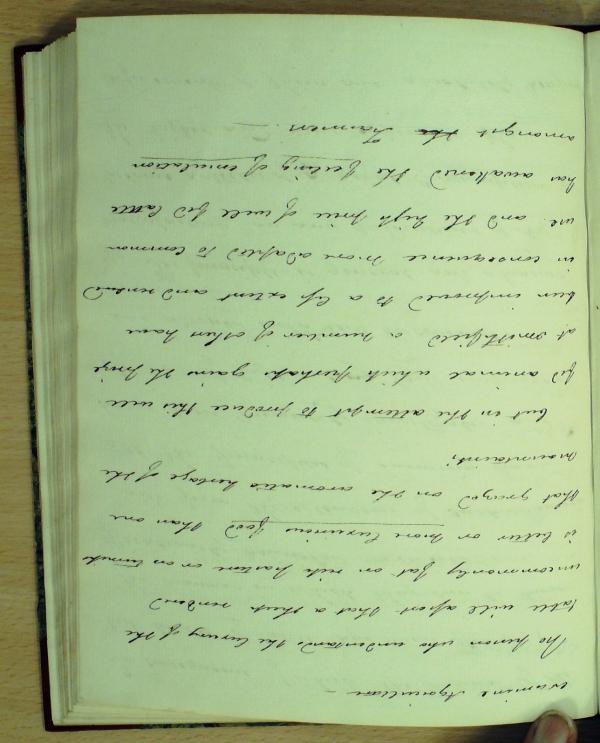 examine Agriculture —
No person who understands the luxury of the
table will assert that a sheep rendered
uncommonly fat on rich pasture or on turnips
is better or more luxurious food than one
that grazed on the aromatic herbage of the
mountains;
but in the attempt to produce this well
fed animal which perhaps gains the prize
at Smithfield a number of others have
been improved to a less extent and rendered
in consequence more adapted to common
use. and the high price of well fed cattle
has awakened the feeling of emulation
amongst the Farmers. —